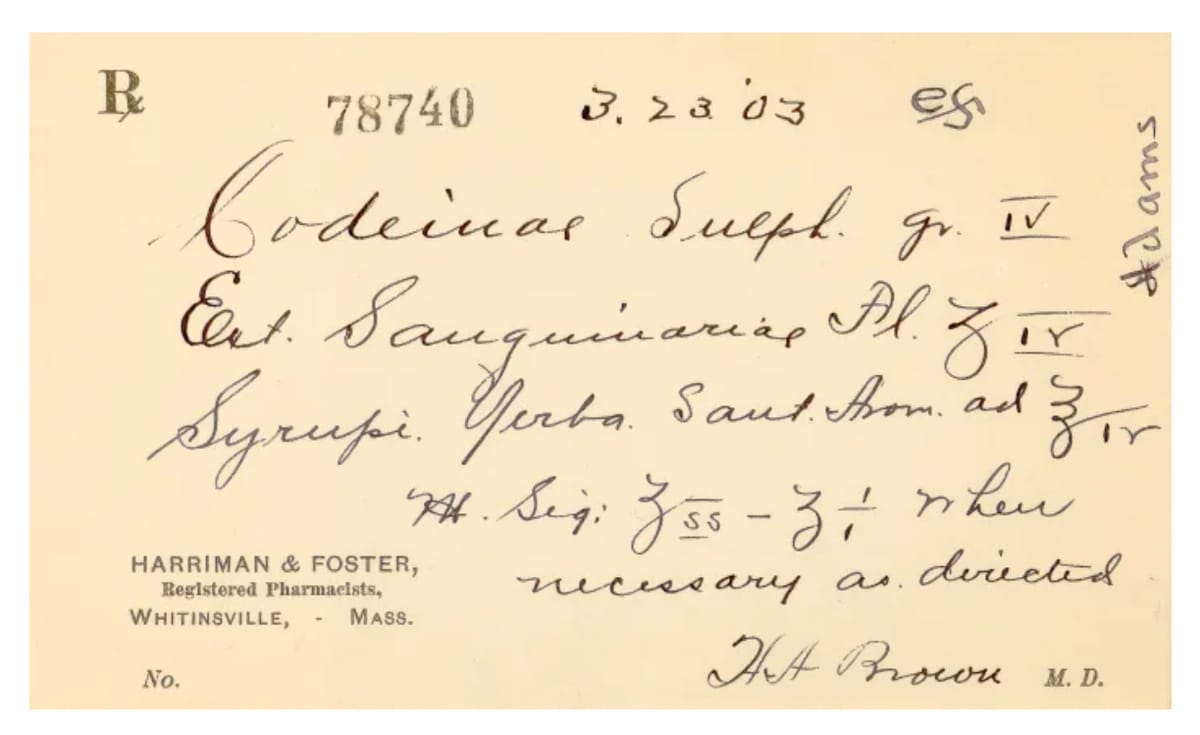 ℞ 78740 3. 23 '03 eG
Codeinae Sulph. gr. IV
Ext. Sanguinariae Fl. ʒ IV
Syrupi. Yerba. Sant. Arom. ad ℥ IV
M. Sig: ʒ ss – ʒ i when
necessary as directed
HARRIMAN & FOSTER,
Registered Pharmacists,
WHITINSVILLE, - MASS.
No.
H A Brown M. D.
Adams